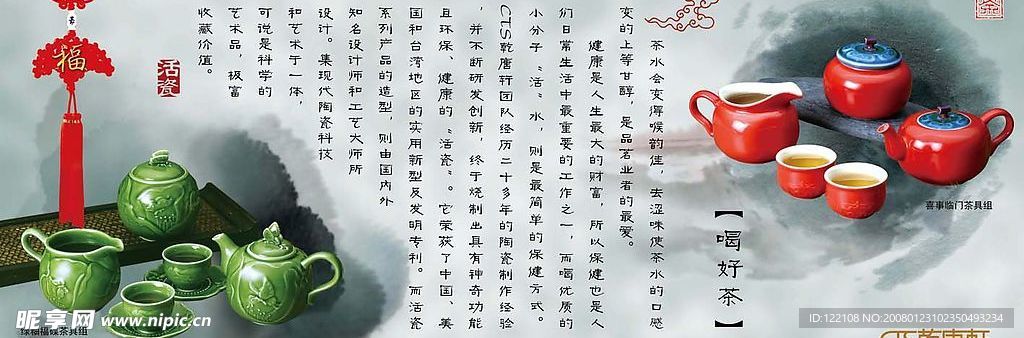 【喝好茶】
茶水会变得喉韵佳，去涩味使茶水的口感
变的上等甘醇，是品茗业者的最爱。
健康是人生最大的财富，所以保健也是人
们日常生活中最重要的工作之一，而喝优质的
小分子“活”水，则是最简单的保健方式。
CTS乾唐轩团队经历二十多年的陶瓷制作经验
，并不断研发创新，终于烧制出具有神奇功能
且环保、健康的“活瓷”。它荣获了中国、美
国和台湾地区的实用新型及发明专利。而活瓷
系列产品的造型，则由国内外
知名设计师和工艺大师所
设计。集现代陶瓷科技
和艺术于一体，
可说是科学的
艺术品，极富
收藏价值。
活瓷
福
喜事临门茶具组
茶具组
昵享网 www.nipic.cn
ID:122108 NO:20080123102350493234